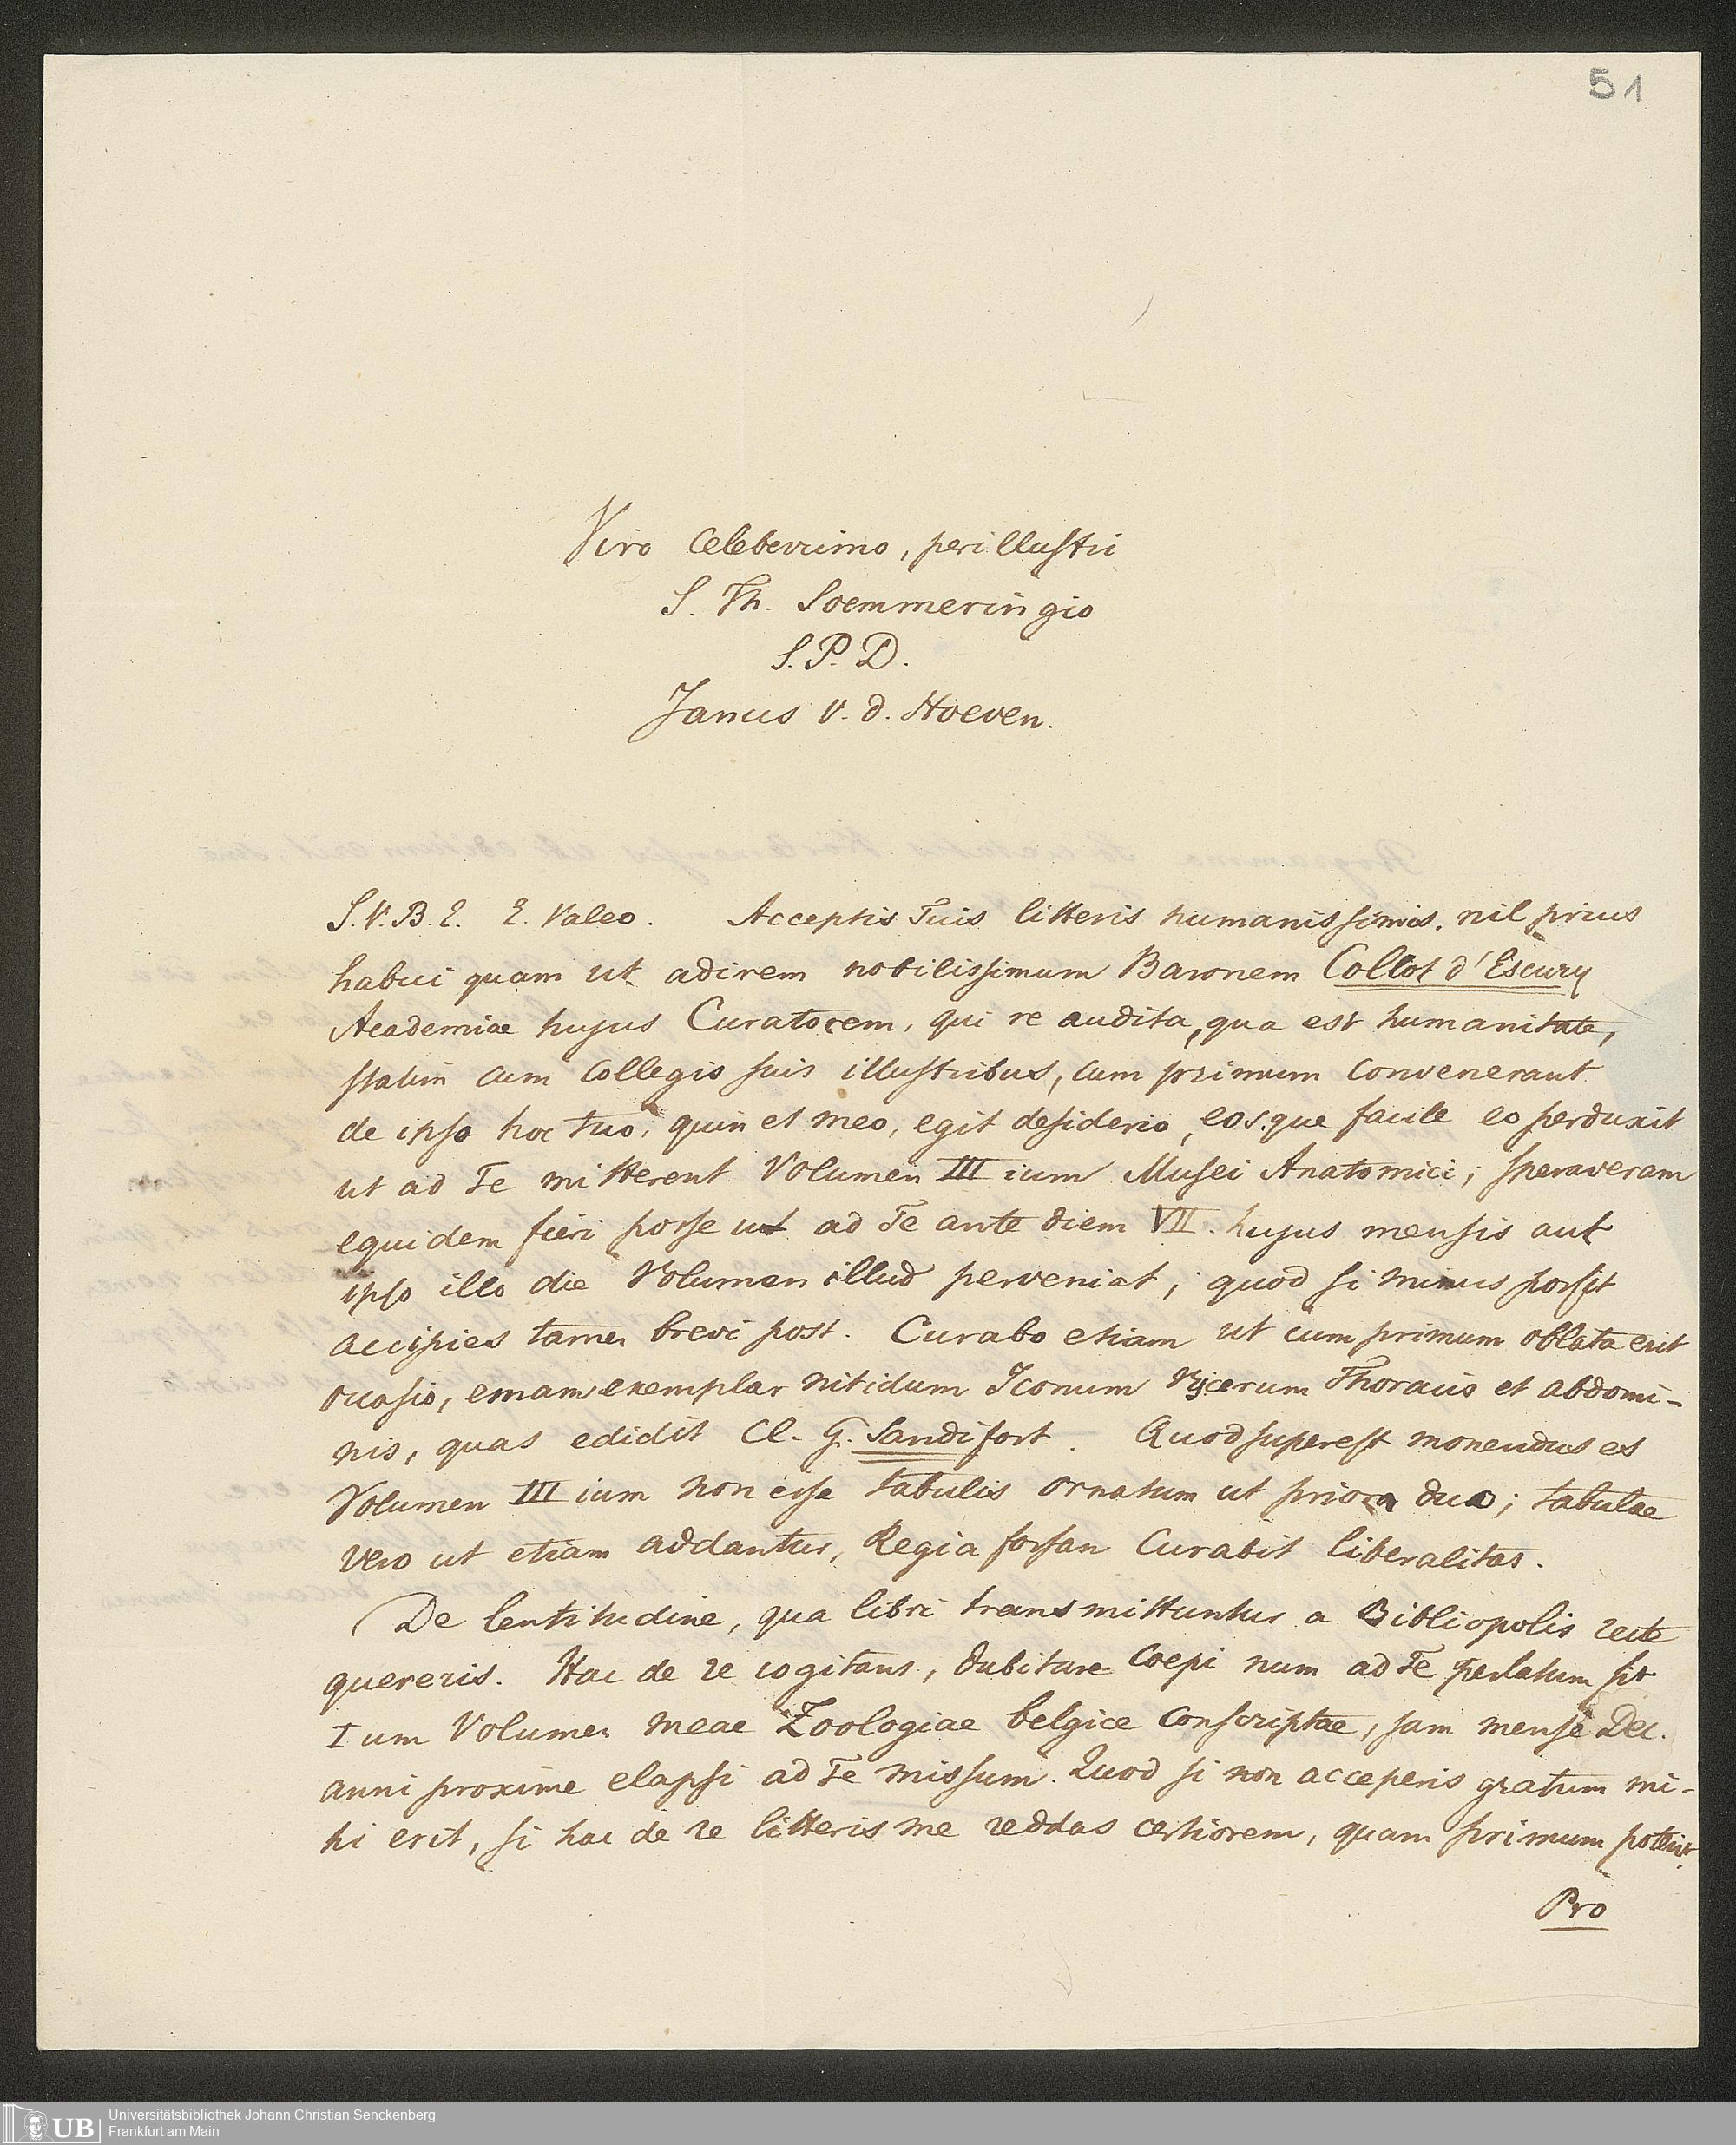 51
Viro Celeberrimo, perillustri
S. Th. Soemmeringio
S. P. D.
Janus v. d. Hoeven.
S. V. B. E. E. Valeo. Acceptis Tuis litteris humanissimis, nil prius
habui quam ut adirem nobilissimum Baronem Collot d'Escury
Academiae hujus Curatorem, qui re audita, qua est humanitate,
statim cum Collegis suis illustribus, cum primum convenerant
de ipso hoc tuo, quin et meo, egit desiderio, eosque facile eo perduxit
ut ad Te mitterent Volumen III ium Musei Anatomici; speraveram
equidem fieri posse ut ad Te ante diem VII. hujus mensis aut
ipso illo die Volumen illud perveniat; quod si minus possit
accipies tamen brevi post. Curabo etiam ut cum primum oblata erit
occasio, emam exemplar nitidum Iconum Viscerum Thoracis et abdomi-
nis, quas edidit Cl. G. Sandifort. Quod superest monendus es
Volumen III ium non esse tabulis ornatum ut priora duo; tabulae
vero ut etiam addantur, Regia forsan Curabit liberalitas.
De lentitudine, qua libri transmittuntur a Bibliopolis recte
quereris. Hac de re cogitans, dubitare Coepi num ad Te perlatum sit
I um Volumen meae Zoologiae belgice Conscriptae, jam mense Dec.
anni proxime elapsi ad Te missum. Quod si non acceperis gratum mi-
hi erit, si hac de re litteris me reddas certiorem, quam primum poteris.
Pro
UB
Universitätsbibliothek Johann Christian Senckenberg
Frankfurt am Main